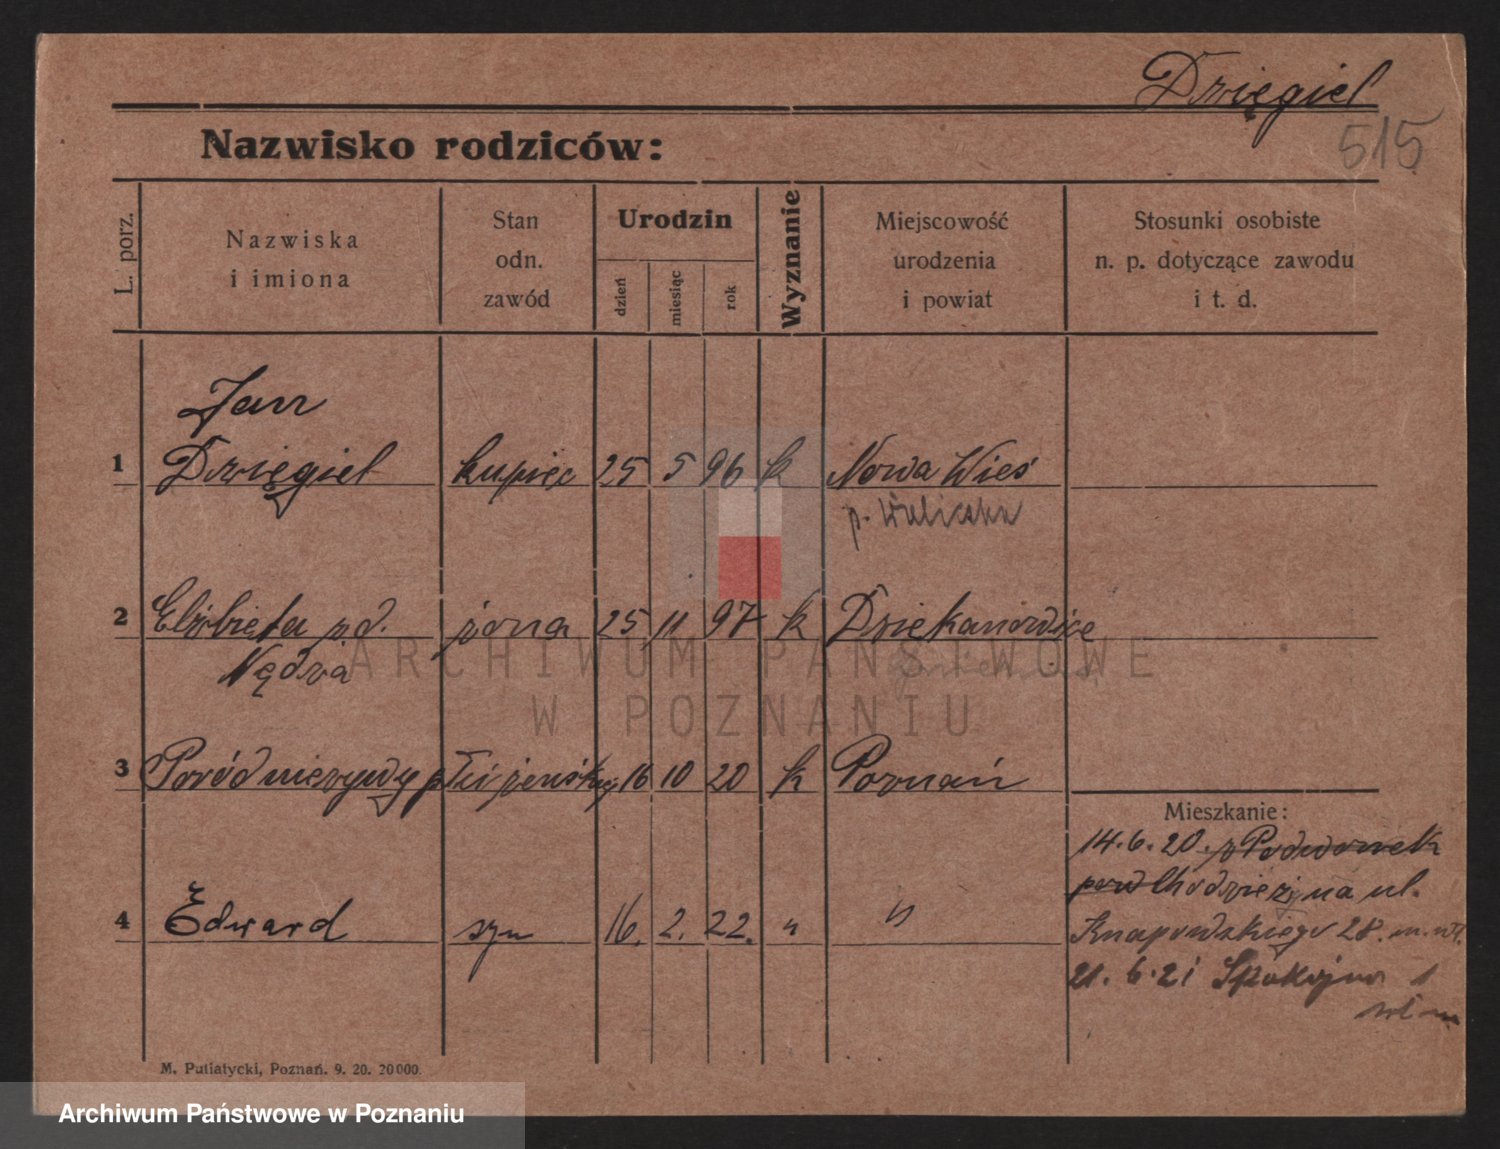 Dzięgiel
515
Nazwisko rodziców:
L. porz.
Nazwiska
i imiona
Stan
odn.
zawód
Urodzin
dzień
miesiąc
rok
Wyznanie
Miejscowość
urodzenia
i powiat
Stosunki osobiste
n. p. dotyczące zawodu
i t. d.
Jan
1 Dzięgiel kupiec 25 5 96 k Nowa Wieś
p. Wieliczka
2 Elżbieta żona 25 11 97 k Dziekanowice
Nędza
ARCHIWUM PAŃSTWOWE
W POZNANIU
3 Poród nieżywy płci żeńskiej 16 10 20 k Poznań
Mieszkanie:
14.6.20. z Podwornek
pow Chodzież na ul.
4 Edward syn 16. 2. 22. " "
Knapowskiego 28.
21.6.21 Spokojna 1
M. Putiatycki, Poznań. 9. 20. 20000.
Archiwum Państwowe w Poznaniu